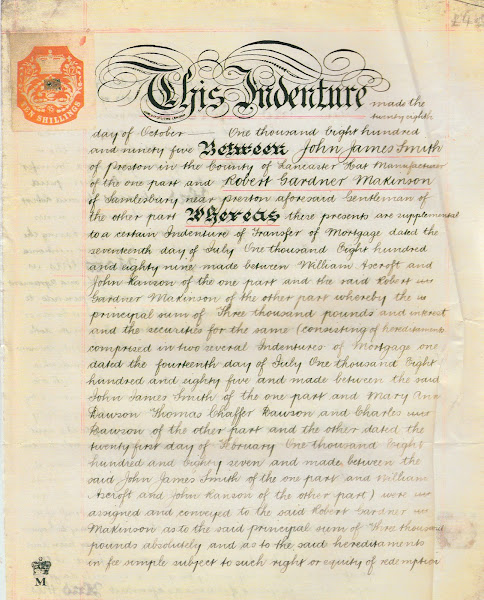 £45
TEN SHILLINGS
This Indenture made the
twenty eighth
day of October One thousand Eight hundred
and ninety five Between John James Smith
of Preston in the County of Lancaster Boat Manufacturer
of the one part and Robert Gardner Makinson
of Samlesbury near Preston aforesaid Gentleman of
the other part Whereas these presents are supplemental
to a certain Indenture of Transfer of Mortgage dated the
seventeenth day of July One thousand Eight hundred
and eighty nine made between William Ascroft and
John Ranson of the one part and the said Robert
Gardner Makinson of the other part whereby the
principal sum of Three thousand pounds and interest
and the securities for the same (consisting of hereditaments
comprised in two several Indentures of Mortgage one
dated the fourteenth day of July One thousand Eight
hundred and eighty five and made between the said
John James Smith of the one part and Mary Ann
Dawson Thomas Chaffer Dawson and Charles
Dawson of the other part and the other dated the
twenty first day of February One thousand Eight
hundred and eighty seven and made between the
said John James Smith of the one part and William
Ascroft and John Ranson of the other part) were
assigned and conveyed to the said Robert Gardner
Makinson as to the said principal sum of Three thousand
pounds absolutely and as to the said hereditaments
in fee simple subject to such right or equity of redemption
M